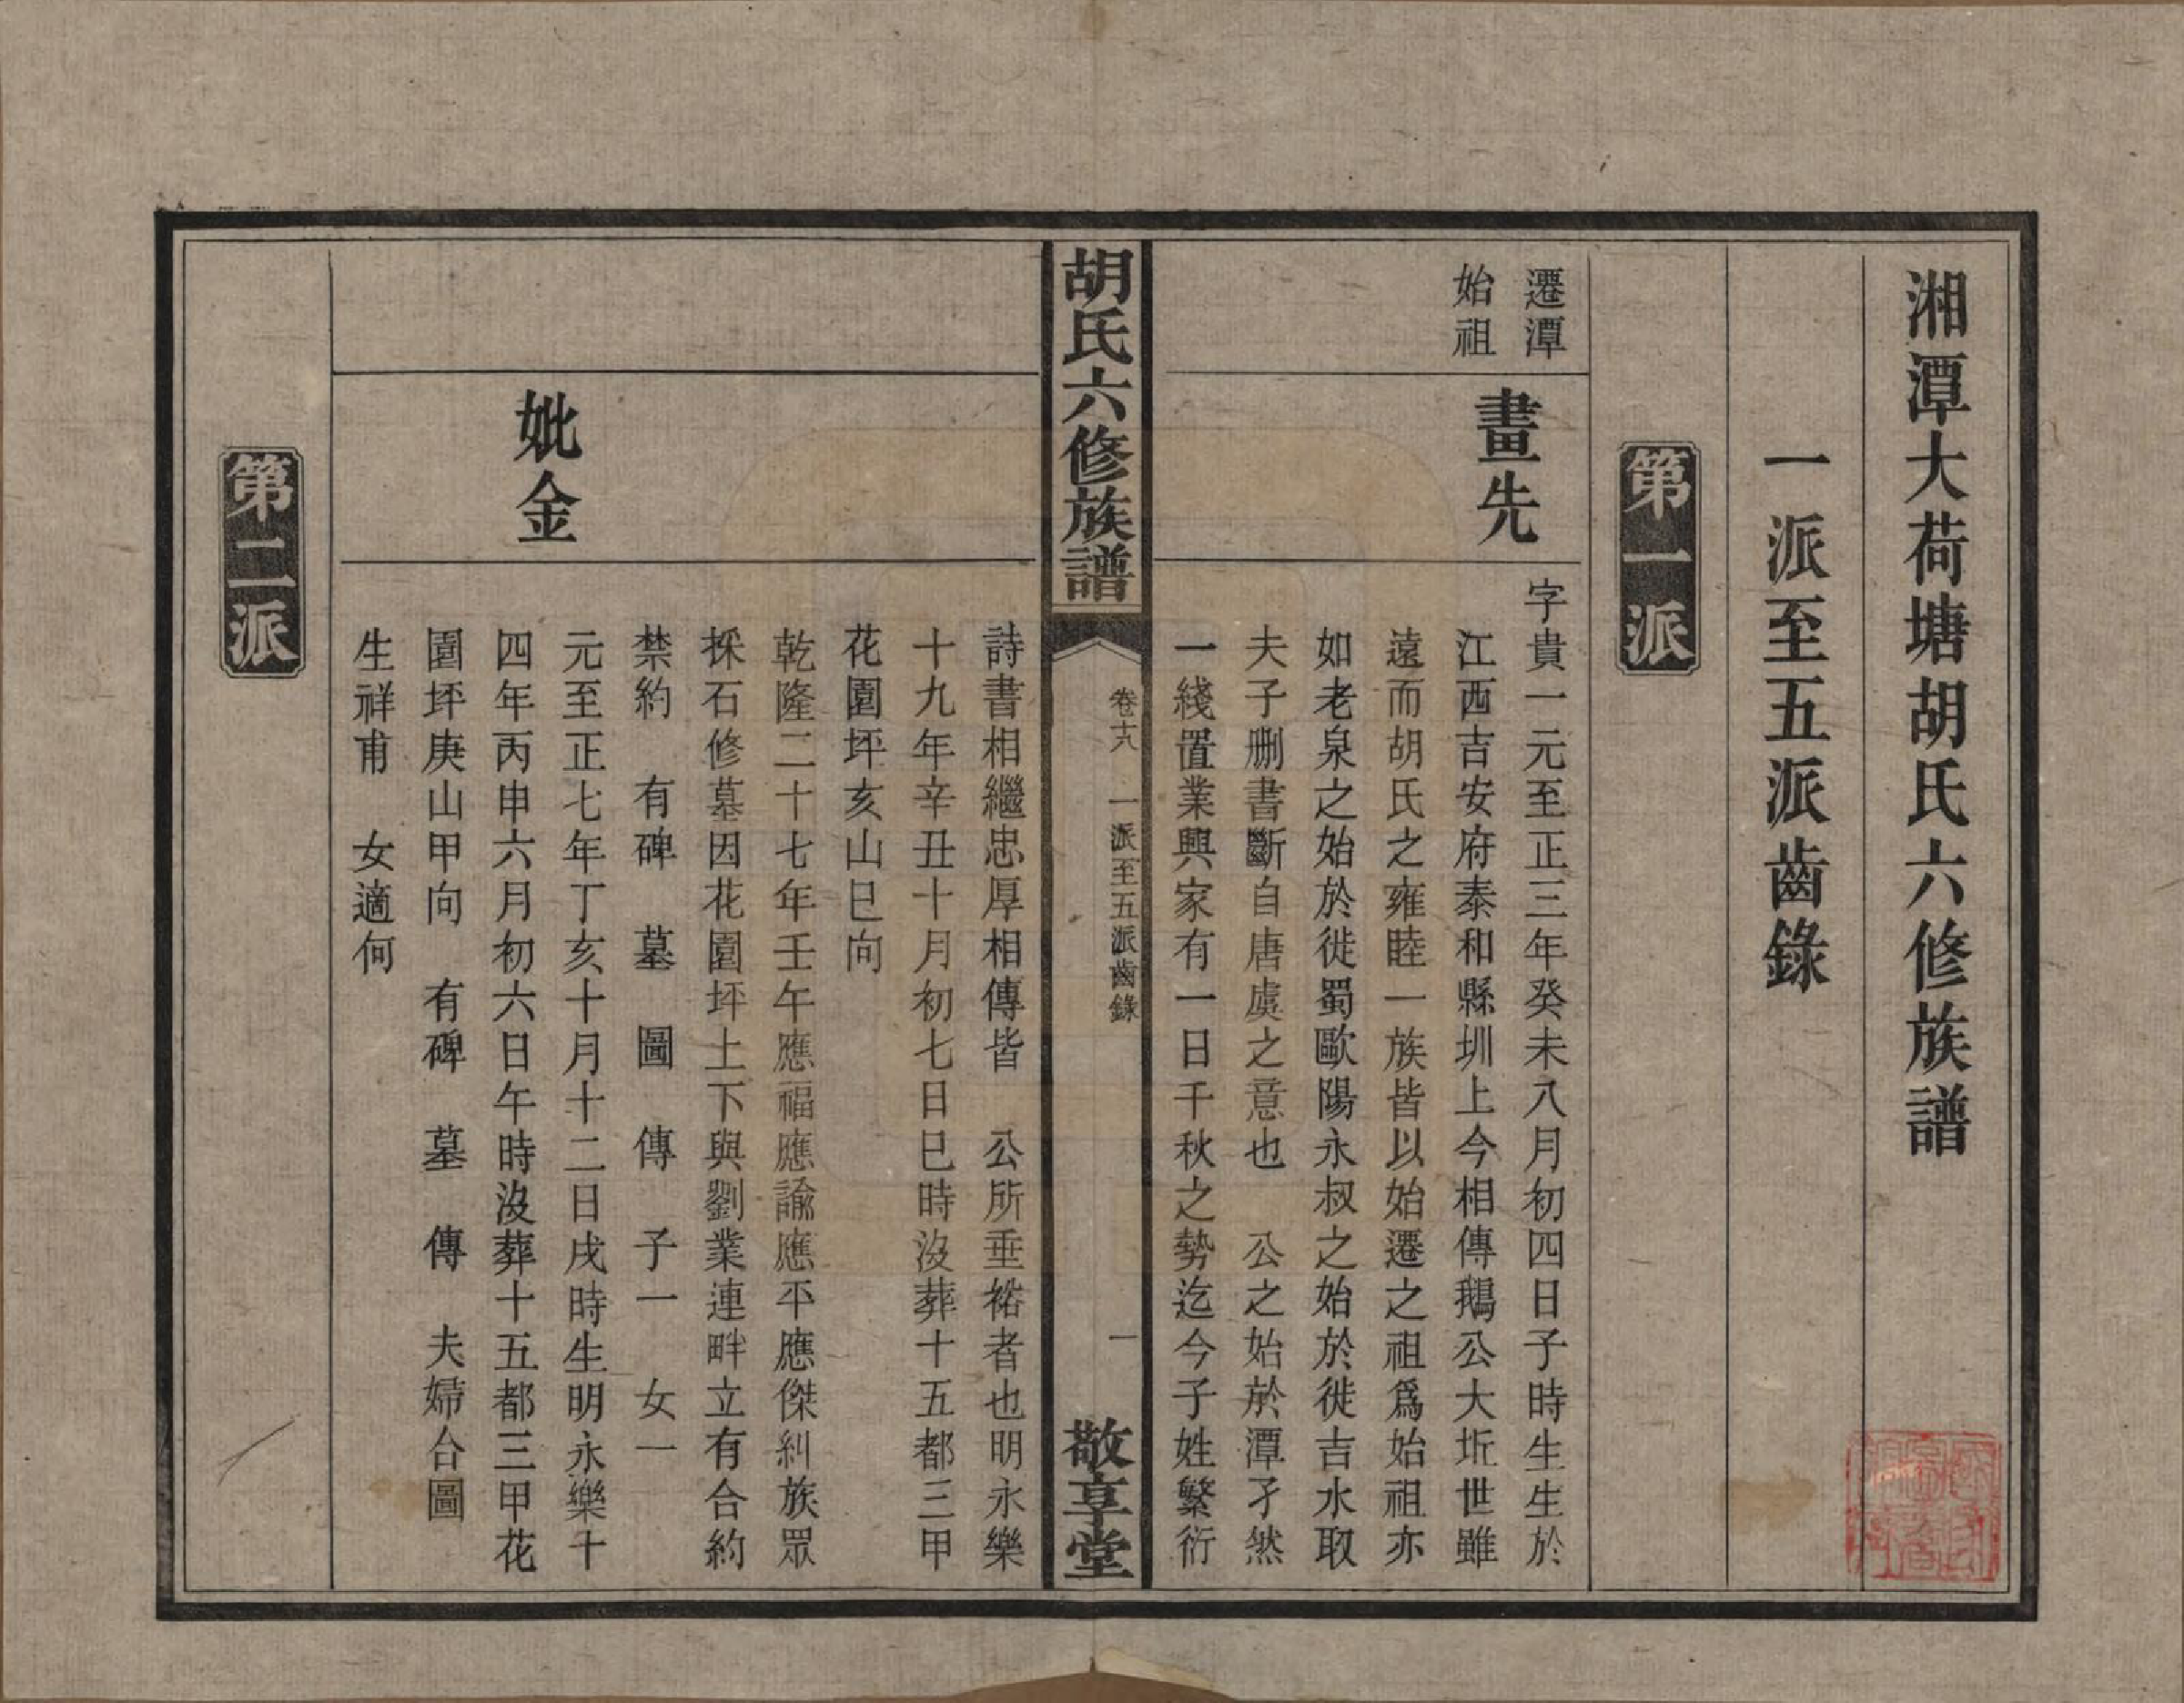 湘潭大荷塘胡氏六修族譜
一派至五派齒錄
第一派
遷潭
始祖
畫先
字貴一元至正三年癸未八月初四日子時生生於
江西吉安府泰和縣圳上今相傳鵝公大坵世雖
遠而胡氏之雍睦一族皆以始遷之祖爲始祖亦
如老泉之始於徙蜀歐陽永叔之始於徙吉水取
夫子刪書斷自唐虞之意也 公之始於潭孑然
一綫置業興家有一日千秋之勢迄今子姓繁衍
胡氏六修族譜
卷十八 一派至五派齒錄
一
敬享堂
詩書相繼忠厚相傳皆 公所垂裕者也明永樂
十九年辛丑十月初七日巳時沒葬十五都三甲
花園坪亥山巳向
乾隆二十七年壬午應福應諭應平應傑糾族眾
採石修墓因花園坪土下與劉業連畔立有合約
禁約 有碑 墓 圖 傳 子一 女一
妣金
元至正七年丁亥十月十二日戌時生明永樂十
四年丙申六月初六日午時沒葬十五都三甲花
園坪庚山甲向 有碑 墓 傳 夫婦合圖
生祥甫 女適何
第二派